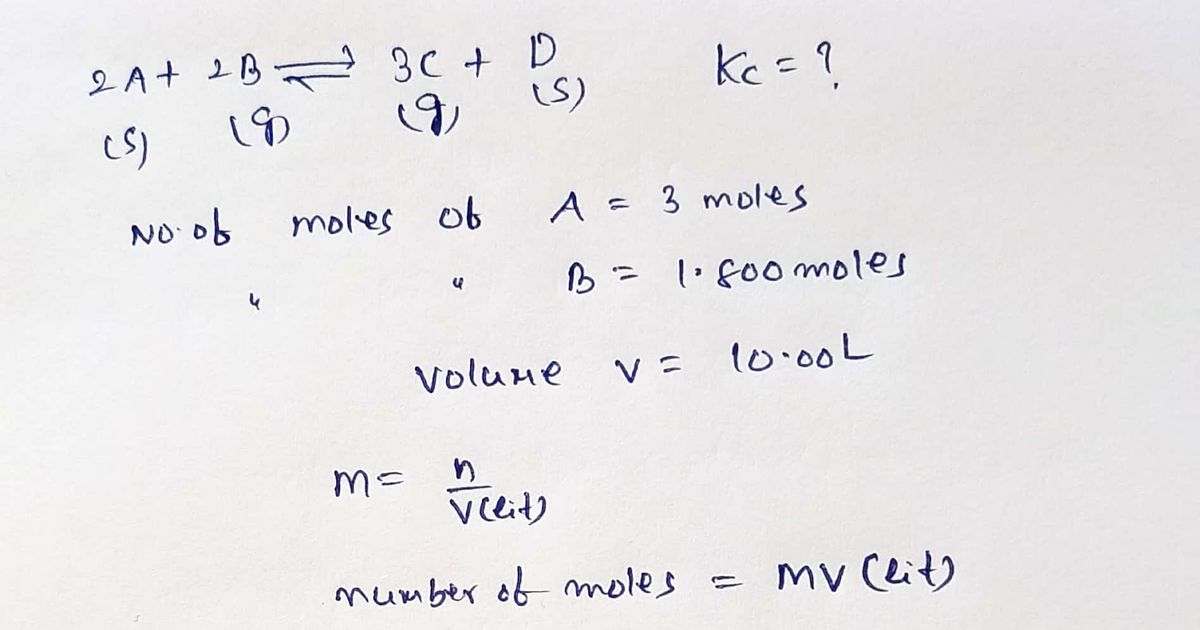 2A + 2B ⇌ 3C + D Kc = ?
(s) (g) (g) (s)
No. of moles of A = 3 moles
" " B = 1.800 moles
Volume V = 10.00L
M = n
V(lit)
number of moles = MV (lit)